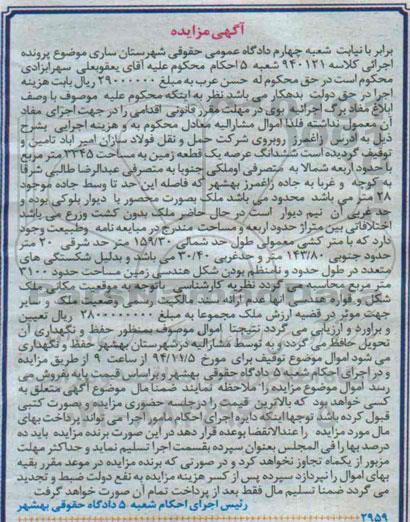 آگهی مزایده
برابر با نیابت شعبه چهارم دادگاه عمومی حقوقی شهرستان ساری موضوع پرونده
اجرائی کلاسه ۹۴۰۱۲۱ شعبه ۵ احکام محکوم علیه آقای یعقوبعلی سهرابزادی
محکوم است در حق محکوم له حسن عرب به مبلغ ۲۹۰۰۰۰۰۰ ریال بابت هزینه
اجرا در حق دولت بدهکار می باشد نظر به اینکه محکوم علیه موصوف با وصف
ابلاغ مفاد برگ اجرائیه بوی در مهلت مقرر قانونی اقدامی را در جهت اجرای مفاد
آن معمول نداشته فلذا اموال مشارالیه معادل محکوم به و هزینه اجرایی بشرح
ذیل به آدرس زاغمرز روبروی شرکت حمل و نقل فولاد سازان امیر آباد تامین و
توقیف گردیده است ششدانگ عرصه یک قطعه زمین به مساحت ۳۳۴۵ متر مربع
با حدود اربعه شمالا به متصرفی اوملکی جنوبا به متصرفی عبدالرضا طالبی شرقا
به کوچه و غربا به جاده زاغمرز بهشهر که فاصله این حد تا وسط جاده موجود
۲۸ متر می باشد محدود می باشد ملک بصورت محصور با دیوار بلوکی بوده و
حد غربی آن نیم دیوار است در حال حاضر ملک بدون کشت وزرع می باشد
اختلافاتی بین متراژ حدود اربعه و مساحت مندرج در مبایعه نامه وطبیعت وجود
دارد که با متر کشی معمولی طول حد شمالی ۱۵۹/۳۰ متر حد شرقی ۲۰ متر
حدود جنوبی ۱۴۳/۸۰ متر و حدغربی ۳۰/۴۰ می باشد و بدلیل شکستگی های
متعدد در طول حدود و نامنظم بودن شکل هندسی زمین مساحت حدود ۳۱۰۰
متر مربع محاسبه می گردد نظریه کارشناسی باتوجه به موقعیت مکانی ملک
شکل و قواره هندسی آنها عدم ارائه سند مالکیت ثبتی وضعیت ملک و
جهت موثر در قضیه ارزش ملک مجموعا به مبلغ ۲۸۰۰۰۰۰۰۰۰ ریال تعیین
و برآورد و ارزیابی می گردد نتیجتا اموال موصوف بمنظور حفظ و نگهداری آن
تحویل حافظ می گردد و به توسط مشارالیه در شهرستان بهشهر حفظ و نگهداری
می شود اموال موضوع توقیف برای مورخ ۹۴/۱۱/۵ از ساعت ۹ از طریق مزایده
و در اجرای احکام شعبه ۵ دادگاه حقوقی بهشهر و براساس قیمت پایه بفروش می
رسد اموال موضوع مزایده را ملاحظه نمایند ضمنا مال موضوع آگهی متعلق به
کسی خواهد بود که بالاترین قیمت را درجلسه حضوری مزایده و بصورت کتبی
قبول کرده باشد توجهااینکه دایره اجرای احکام مدنی اجرا می تواند پرداخت بهای
مال مورد مزایده را عندالاتقضا بوعده قرار دهد در این صورت برنده مزایده باید ده
درصد بها را فی المجلس بعنوان سپرده بقسمت اجرا تسلیم نماید و حداکثر مهلت
مزبور از یکماه تجاوز نخواهد کرد و در صورتی که برنده مزایده در موعد مقرر بقیه
بهای اموال را نپردازد سپرده پس از کسر هزینه مزایده به نفع دولت ضبط و تجدید
می گردد ضمنا تسلیم مال فقط بعد از پرداخت تمام آن صورت خواهد گرفت
رئیس اجرای احکام شعبه ۵ دادگاه حقوقی بهشهر
۲۹۵۹